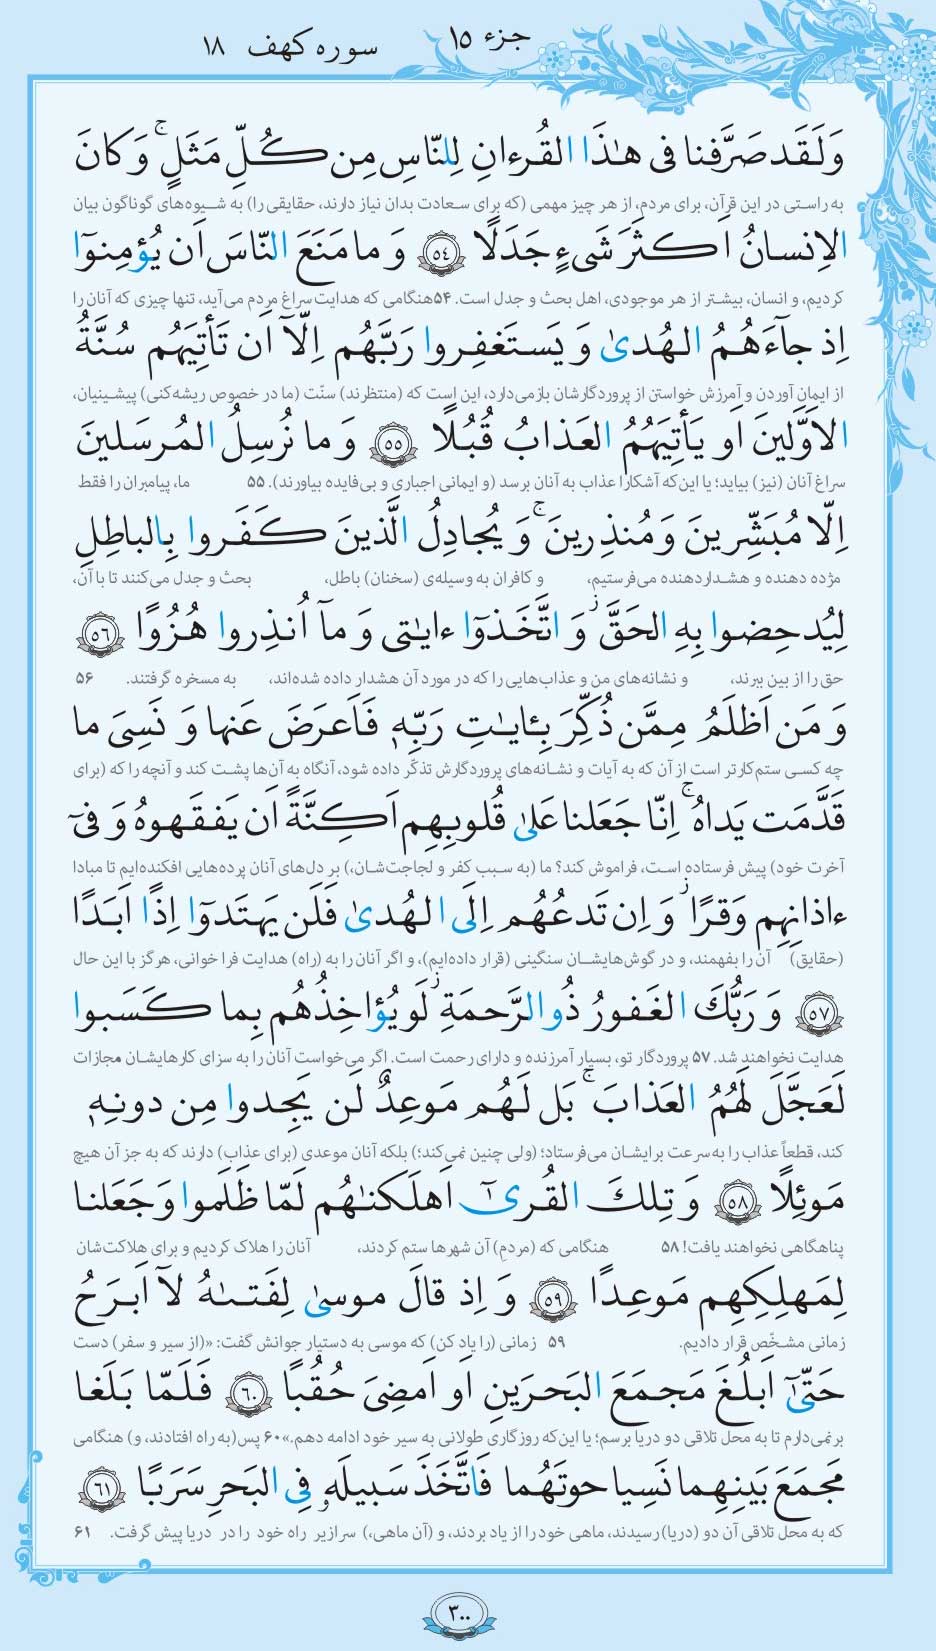 جزء ۱۵
سوره کهف ۱۸
وَلَقَد صَرَّفنا فی هٰذَا القُرءانِ لِلنّاسِ مِن کُلِّ مَثَلٍ ۚ وَ کانَ
به راستی در این قرآن، برای مردم، از هر چیز مهمی (که برای سعادت بدان نیاز دارند، حقایقی را) به شیوه‌های گوناگون بیان
الاِنسانُ اَکثَرَ شَیءٍ جَدَلًا ﴿۵۴﴾ وَ ما مَنَعَ النّاسَ اَن یُؤمِنوٓا
کردیم، و انسان، بیشتر از هر موجودی، اهل بحث و جدل است. ۵۴هنگامی که هدایت سراغ مردم می‌آید، تنها چیزی که آنان را
اِذ جآءَهُمُ الهُدیٰ وَ یَستَغفِروا رَبَّهُم اِلّآ اَن تَأتِیَهُم سُنَّةُ
از ایمان آوردن و آمرزش خواستن از پروردگارشان بازمی‌دارد، این است که (منتظرند) سنّت (ما در خصوص ریشه‌کنی) پیشینیان،
الاَوَّلینَ اَو یَأتِیَهُمُ العَذابُ قُبُلًا ﴿۵۵﴾ وَ ما نُرسِلُ المُرسَلینَ
سراغ آنان (نیز) بیاید؛ یا این‌که آشکارا عذاب به آنان برسد (و ایمانی اجباری و بی‌فایده بیاورند). ۵۵ ما، پیامبران را فقط
اِلّا مُبَشِّرینَ وَ مُنذِرینَ ۚ وَ یُجادِلُ الَّذینَ کَفَروا بِالباطِلِ
مژده دهنده و هشداردهنده می‌فرستیم، و کافران به وسیله‌ی (سخنان) باطل، بحث و جدل می‌کنند تا با آن،
لِیُدحِضوا بِهِ الحَقَّ ۖ وَ اتَّخَذوٓا ءایٰتی وَ مآ اُنذِروا هُزُوًا ﴿۵۶﴾
حق را از بین ببرند، و نشانه‌های من و عذاب‌هایی را که در مورد آن هشدار داده شده‌اند، به مسخره گرفتند. ۵۶
وَ مَن اَظلَمُ مِمَّن ذُکِّرَ بِـٔایٰتِ رَبِّهٖ فَاَعرَضَ عَنها وَ نَسِیَ ما
چه کسی ستم‌کارتر است از آن که به آیات و نشانه‌های پروردگارش تذکّر داده شود، آنگاه به آن‌ها پشت کند و آنچه را که (برای
قَدَّمَت یَداهُ ۚ اِنّا جَعَلنا عَلیٰ قُلوبِهِم اَکِنَّةً اَن یَفقَهوهُ وَ فیٓ
آخرت خود) پیش فرستاده است، فراموش کند؟ ما (به سبب کفر و لجاجت‌شان،) بر دل‌های آنان پرده‌هایی افکنده‌ایم تا مبادا
ءاذانِهِم وَقرًا ۖ وَ اِن تَدعُهُم اِلَی الهُدیٰ فَلَن یَهتَدوٓا اِذًا اَبَدًا
(حقایق) آن را بفهمند، و در گوش‌هایشان سنگینی (قرار داده‌ایم)، و اگر آنان را به (راه) هدایت فرا خوانی، هرگز با این حال
﴿۵۷﴾ وَ رَبُّكَ الغَفورُ ذُو الرَّحمَةِ ۖ لَو یُؤاخِذُهُم بِما کَسَبوا
هدایت نخواهند شد. ۵۷ پروردگار تو، بسیار آمرزنده و دارای رحمت است. اگر می‌خواست آنان را به سزای کارهایشان مجازات
لَعَجَّلَ لَهُمُ العَذابَ ۚ بَل لَهُم مَوعِدٌ لَن یَجِدوا مِن دونِهٖ
کند، قطعاً عذاب را به‌سرعت برایشان می‌فرستاد؛ (ولی چنین نمی‌کند؛) بلکه آنان موعدی (برای عذاب) دارند که به جز آن هیچ
مَوئِلًا ﴿۵۸﴾ وَ تِلكَ القُریٰٓ اَهلَکنٰهُم لَمّا ظَلَموا وَ جَعَلنا
پناهگاهی نخواهند یافت! ۵۸ هنگامی که (مردم) آن شهرها ستم کردند، آنان را هلاک کردیم و برای هلاکت‌شان
لِمَهلِکِهِم مَوعِدًا ﴿۵۹﴾ وَ اِذ قالَ موسیٰ لِفَتىٰهُ لآ اَبرَحُ
زمانی مشخّص قرار دادیم. ۵۹ زمانی (را یاد کن) که موسی به دستیار جوانش گفت: «(از سیر و سفر) دست
حَتّیٰٓ اَبلُغَ مَجمَعَ البَحرَینِ اَو اَمضِیَ حُقُبًا ﴿۶۰﴾ فَلَمّا بَلَغا
برنمی‌دارم تا به محل تلاقی دو دریا برسم؛ یا این‌که روزگاری طولانی به سیر خود ادامه دهم.»۶۰ پس(به راه افتادند، و) هنگامی
مَجمَعَ بَینِهِما نَسِیا حوتَهُما فَاتَّخَذَ سَبیلَهٗ فِی البَحرِ سَرَبًا ﴿۶۱﴾
که به محل تلاقی آن دو (دریا) رسیدند، ماهی خود را از یاد بردند، و (آن ماهی،) سرازیر راه خود را در دریا پیش گرفت. ۶۱
۳۰۰